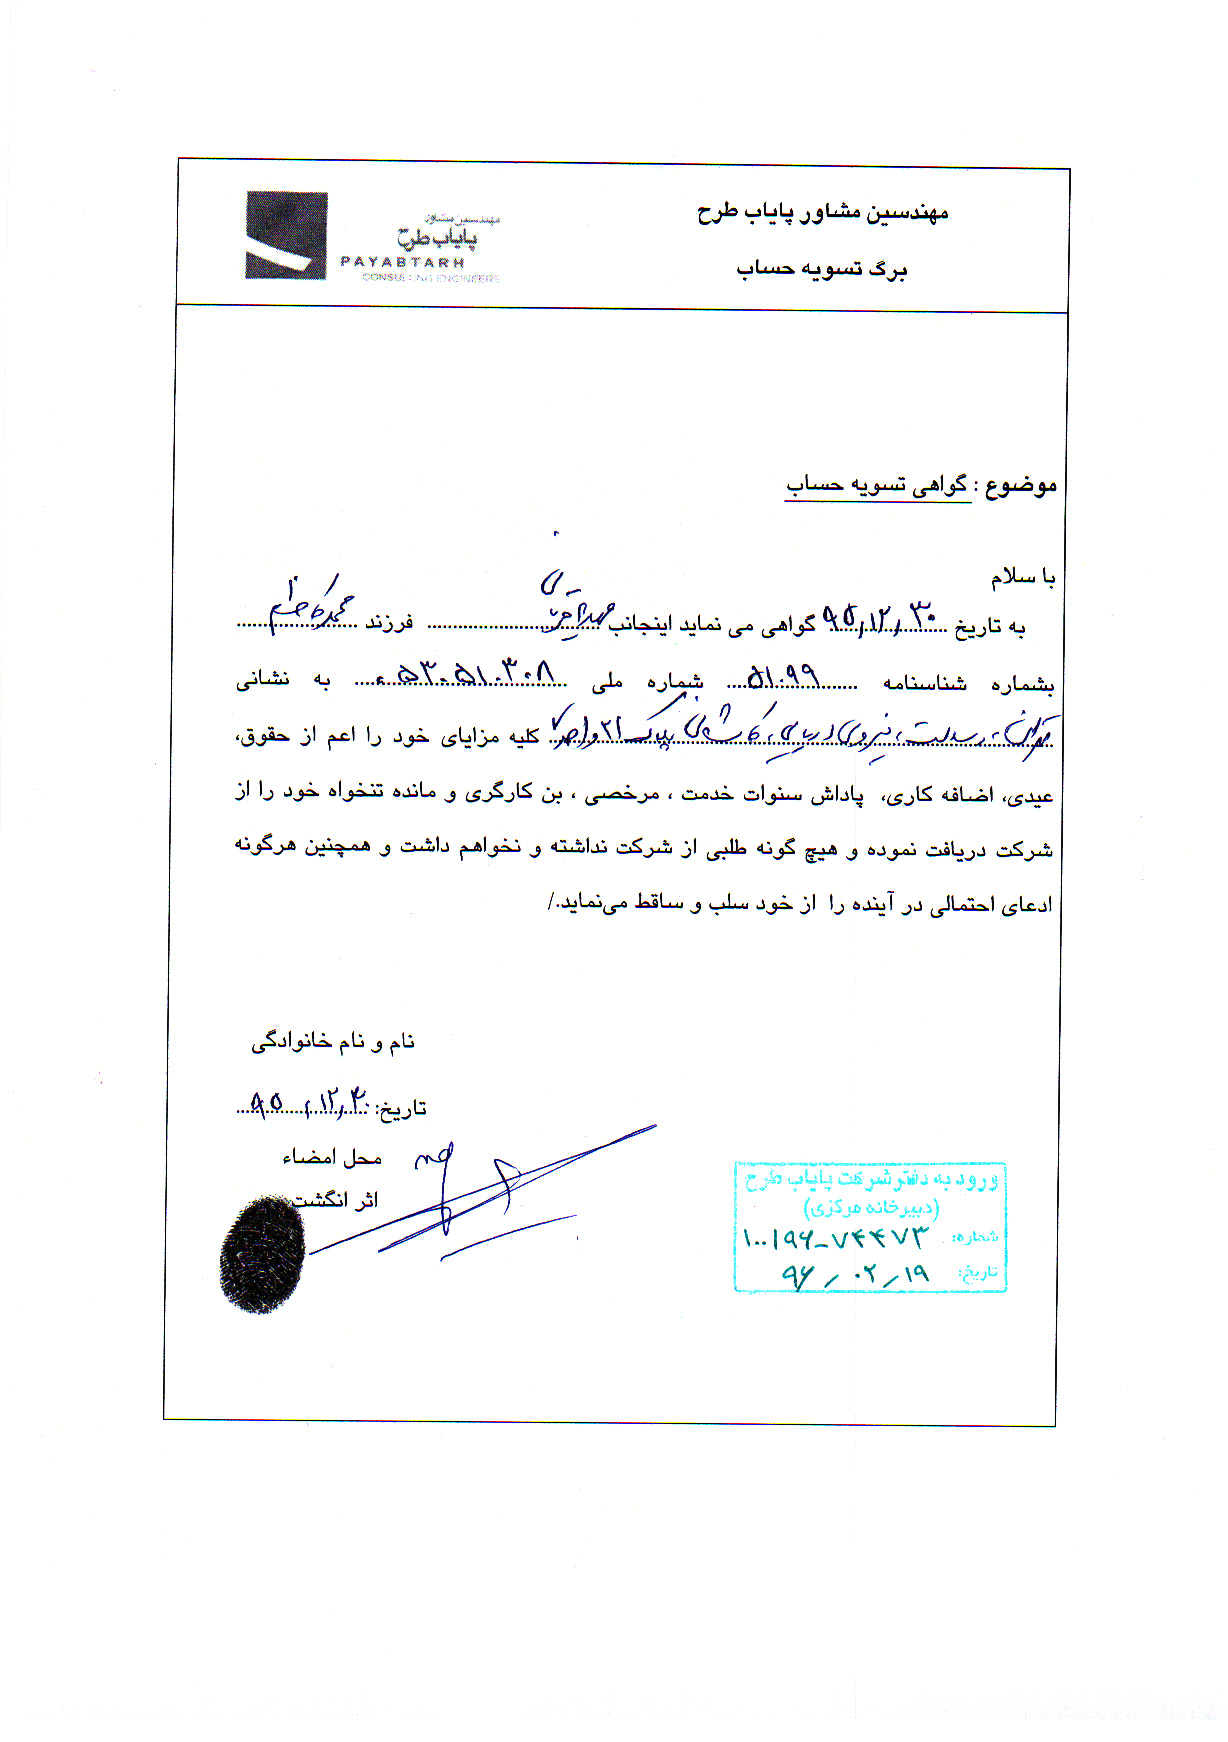 مهندسین مشاور پایاب طرح
برگ تسویه حساب
مهندسین مشاور
پایاب طرح
PAYABTARH
CONSULTING ENGINEERS
موضوع : گواهی تسویه حساب
با سلام
به تاریخ ۹۵/۱۲/۳۰ گواهی می نماید اینجانب فرزند محمد کاظم
بشماره شناسنامه ۵۱۰۹۹ شماره ملی به نشانی
تهران، رسالت، نیروی دریایی، پلاک ۲۱ واحد ۷ کلیه مزایای خود را اعم از حقوق،
عیدی، اضافه کاری، پاداش سنوات خدمت ، مرخصی ، بن کارگری و مانده تنخواه خود را از
شرکت دریافت نموده و هیچ گونه طلبی از شرکت نداشته و نخواهم داشت و همچنین هرگونه
ادعای احتمالی در آینده را از خود سلب و ساقط می‌نماید./
نام و نام خانوادگی
تاریخ: ۹۵/۱۲/۳۰
محل امضاء
اثر انگشت
ورود به دفتر شرکت پایاب طرح
(دبیرخانه مرکزی)
شماره: ۱۰۰۱۹۶-۷۴۴۷۳
تاریخ: ۹۶/۰۲/۱۹